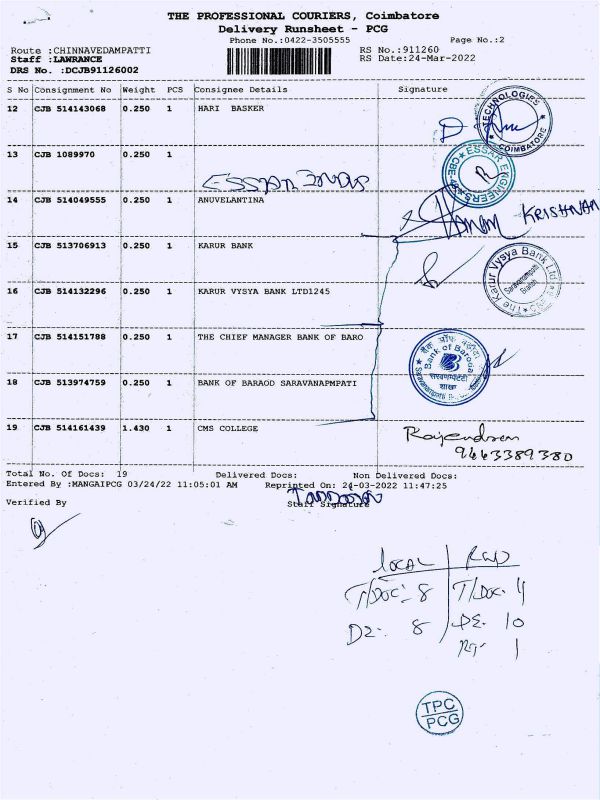 THE PROFESSIONAL COURIERS, Coimbatore
Delivery Runsheet - PCG
Phone No.:0422-3505555 Page No.:2
Route :CHINNAVEDAMPATTI RS No.:911260
Staff :LAWRANCE RS Date:24-Mar-2022
DRS No. :DCJB91126002
S No Consignment No Weight PCS Consignee Details Signature
12 CJB 514143068 0.250 1 HARI BASKER
TECHNOLOGIES COIMBATORE
13 CJB 1089970 0.250 1
ESSAR ENGINEERS
14 CJB 514049555 0.250 1 ANUVELANTINA
KRISHNAN
15 CJB 513706913 0.250 1 KARUR BANK
The Karur Vysya Bank Ltd
Saravanampatti
Branch
16 CJB 514132296 0.250 1 KARUR VYSYA BANK LTD1245
17 CJB 514151788 0.250 1 THE CHIEF MANAGER BANK OF BARO
बैंक ऑफ बड़ौदा
Bank of Baroda
शाखा
18 CJB 513974759 0.250 1 BANK OF BARAOD SARAVANAPMPATI
19 CJB 514161439 1.430 1 CMS COLLEGE
Rajendran
9663389380
Total No. Of Docs: 19 Delivered Docs: Non Delivered Docs:
Entered By :MANGAIPCG 03/24/22 11:05:01 AM Reprinted On: 24-03-2022 11:47:25
Verified By Staff Signature
LOCAL
T/DOC: 8 T/DOC. 4
DE: 8 DE. 10
1
TPC
PCG